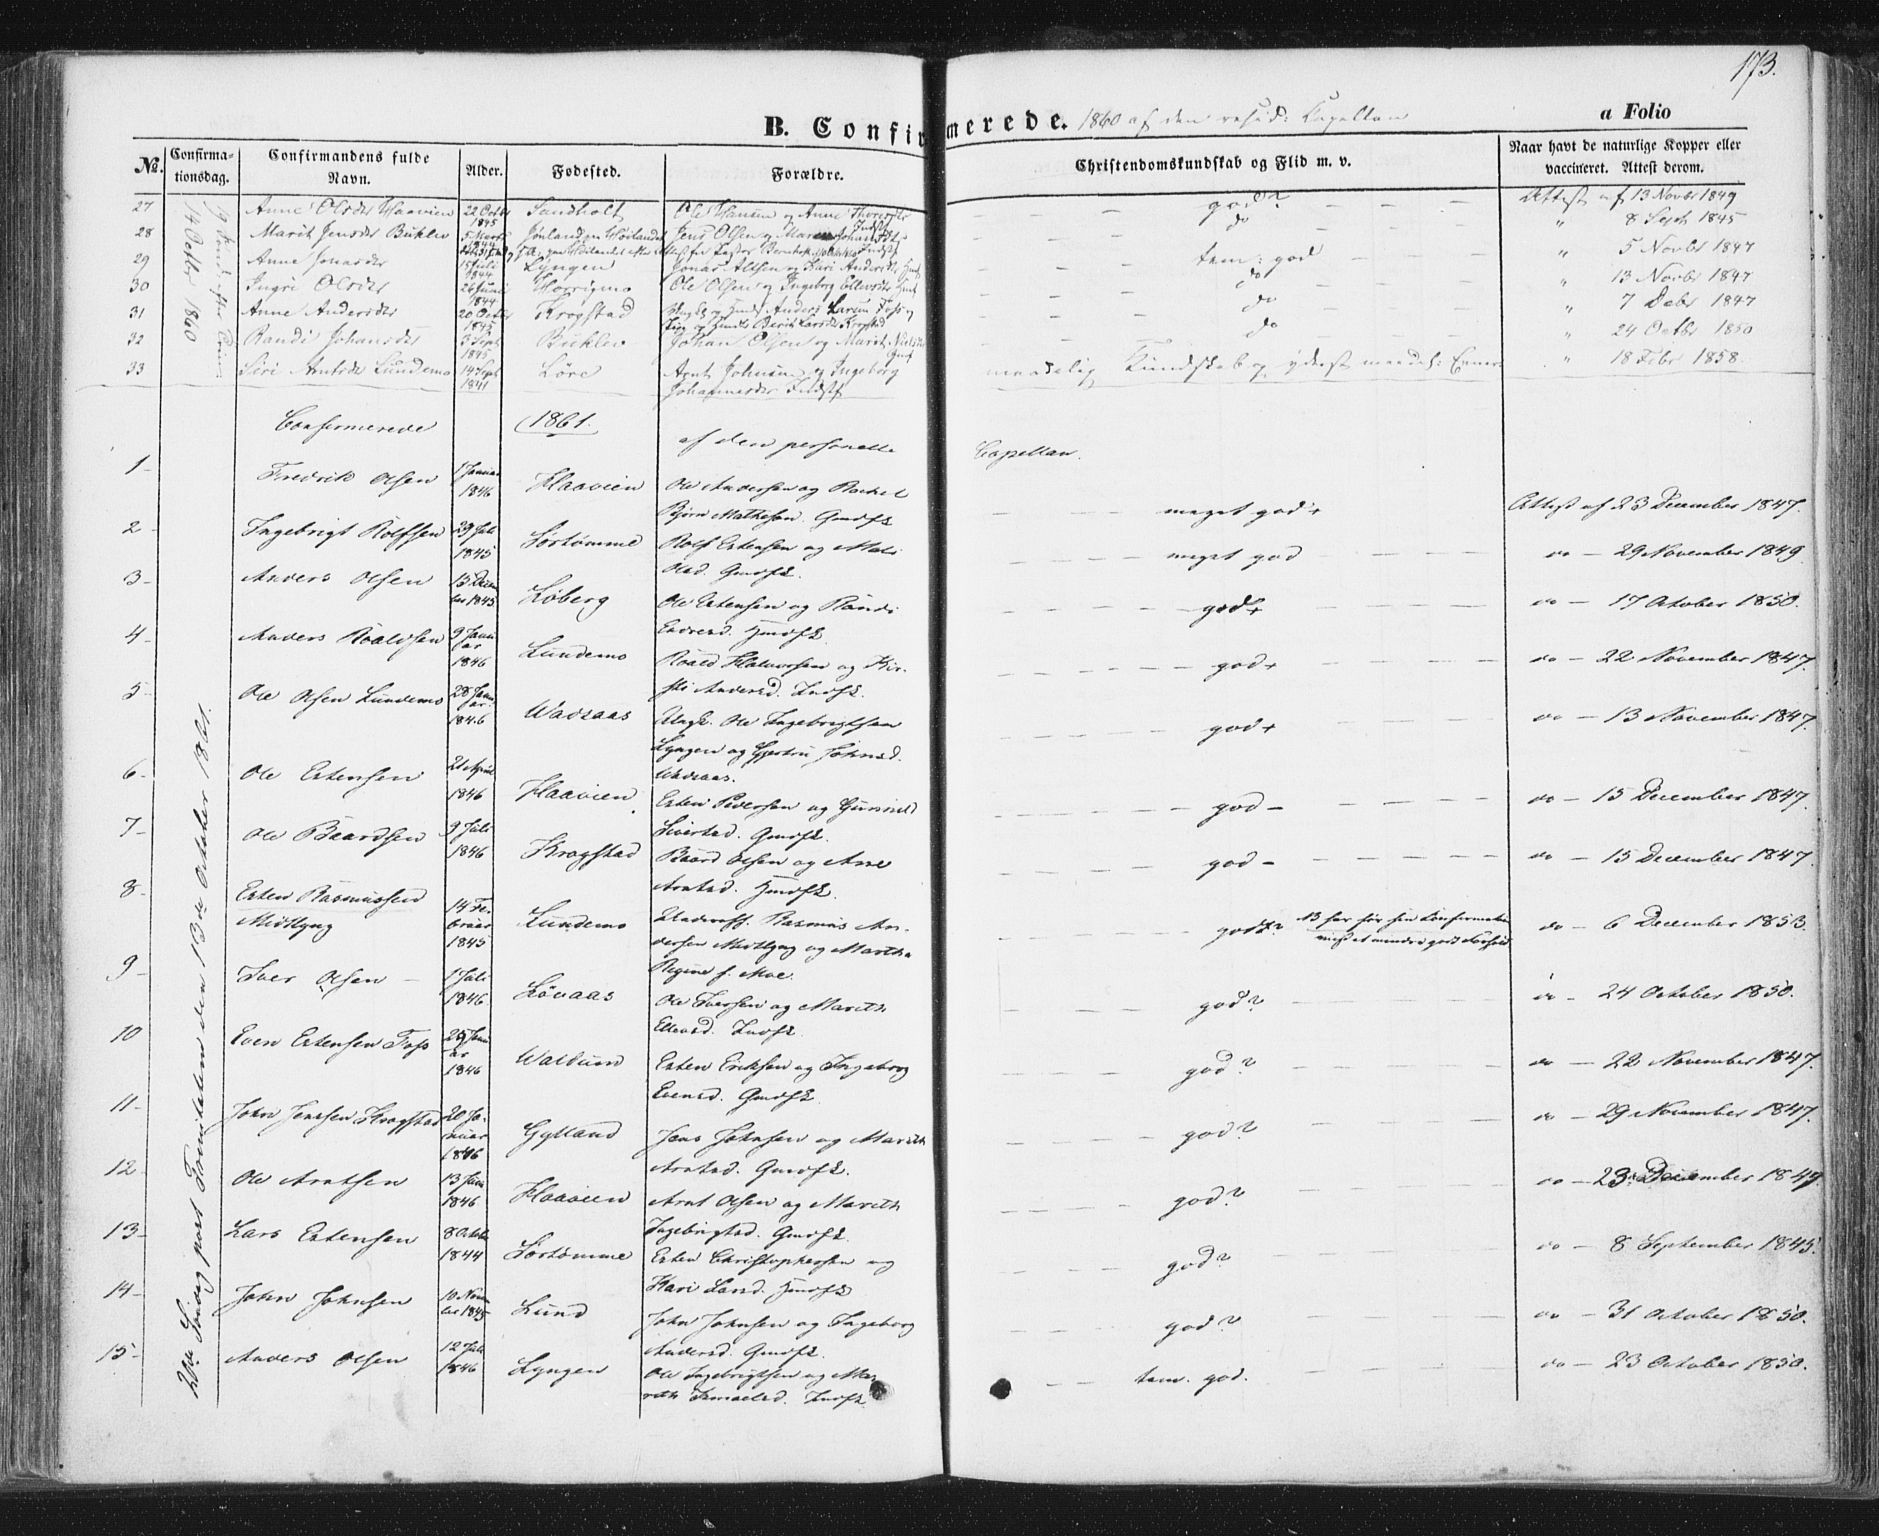 173.
B. Confirmerede. 1860 af den resid: Capellan
a Folio
No. Confirmationsdag. Confirmandens fulde Navn. Alder. Fødested. Forældre. Christendomskundskab og Flid m. v. Naar havt de naturlige Kopper eller vaccineret. Attest derom.
14 Octbr 1860
27 Anne Olsdtr Haavien 22 Octbr 1845 Sandholt Ole Hansen og Anne god? Attest af 13 Novbr 1849
28 Marit Jensdtr Buklev 5 Marts 1844 Jens Olsen og do " 8 Sept 1845
29 Anne Jonasdtr 15 Juli 1844 Lyngen Jonas og Kari Andersdtr tem: god " 5 Novbr 1847
30 Ingri Olsdtr 26 Juni 1844 Horrigmo Ole Olsen og Ingeborg Ellevsdtr do " 13 Novbr 1847
31 Anne Andersdtr 20 Octbr 1845 Krogstad Anders Larsen Foss og Berit Larsdtr Krogstad do " 7 Decbr 1847
32 Randi Johansdtr 3 Sept 1845 Buklev Johan Olsen og Marit do " 24 Octbr 1850
33 Siri Arntsdtr Lundemo 14 Sept 1841 Løre Arnt Johnsen og Ingeborg Johannesdtr maadelig Kundskab og yderst " 18 Febr 1858.
Confirmerede 1861. af den personelle Capellan.
20de Søndag post Trinitatem den 13de October 1861.
1- Fredrik Olsen 1 Januar 1846 Haavien Ole Andersen og Rachel
Bjørn Mathesen. Gmdfk meget god+ Attest af 23 December 1847.
2- Ingebrigt Rolfsen 29 Juli 1845 Sørtømme Rolf Estensen og Mali
Olsd. Gmdfk. meget god do - 29 November 1849
3- Anders Olsen 15 December 1845 Løberg Ole Estensen og Randi
Endresd. Hmdfk. god+ do - 17 October 1850.
4- Anders Roaldsen 9 Januar 1846 Lundemo Roald Halvorsen og Kir-
sti Andersd. Indfk. god+ do - 22 November 1847.
5- Ole Olsen Lundemo 28 Januar 1846 Wadsaas Ungk. Ole Ingebrigtsen
Lyngen og Gjertru Johnsd.
Wadsaas. god+ do - 13 November 1847.
6- Ole Estensen 21 April 1846 Haavien Esten Pedersen og Gunnild
Sivertsd. Gmdfk. god- do - 15 December 1847.
7- Ole Baardsen 9 Juli 1846 Krogstad Baard Olsen og Ane
Arntsd. Hmdfk. god- do - 15 December 1847.
8- Esten Rasmussen
Midtlyng 14 Februar 1845 Lundemo Rasmus An-
dersen Midtlyng og Martha
Regine f. Moe. godt? do - 6 December 1853.
9- Iver Olsen - 1 Juli 1846 Løvaas Ole Iversen og Marith
Ellevsd. Indfk. god? do - 24 October 1850.
10 Even Estensen Foss 25 Januar 1846 Waldum Esten Eriksen og Ingeborg
Evensd. Gmdfk. god? do - 22 November 1847.
11- John Jenssen Krogstad 20 Januar 1846 Gylland Jens Johnsen og Marith
Arntsd. Gmdfk. god? do - 29 November 1847.
12- Ole Arntsen 13 1846 Haavien Arnt Olsen og Marith
Ingebrigtsd. Gmdfk. god? do - 23 December 1847.
13- Lars Estensen 8 October 1844 Sørtømme Esten Christophersen og
Kari Larsd. Hmdfk god? do - 8 September 1845.
14- John Johnsen 10 November 1845 Lund John Johnsen og Ingeborg
Andersd. Gmdfk. god? do - 31 October 1850.
15- Anders Olsen 12 Juli 1846 Lyngen Ole Ingebrigtsen og Ma-
rith Ismaelsd. Indfk. tem. god. do - 23 October 1850.